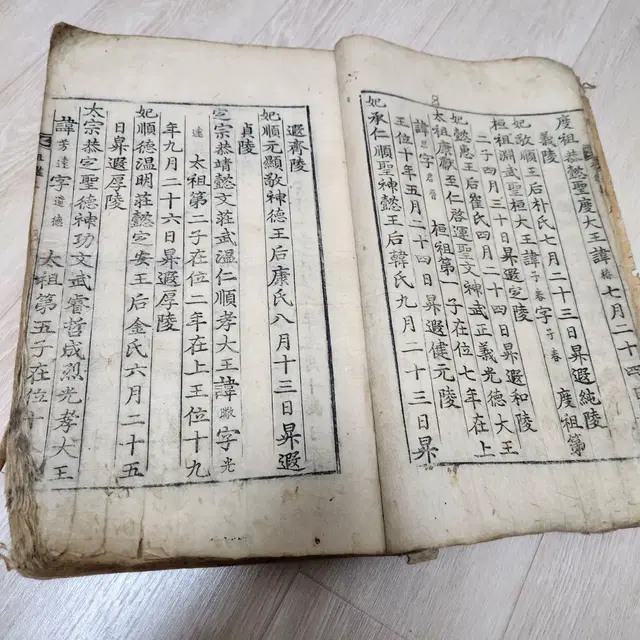 度祖恭懿聖度大王諱椿七月二十四
義陵
妃敬順王后朴氏七月二十三日昇遐純陵
桓祖淵武聖桓大王諱子春字子春 度祖第
二子四月三十日昇遐定陵
妃懿惠王后崔氏四月二十四日昇遐和陵
太祖康獻至仁啓運聖文神武正義光德大王
諱旦字君晉 桓祖第一子在位七年在上
王位十年五月二十四日昇遐健元陵
妃承仁順聖神懿王后韓氏九月二十三日昇
遐齊陵
妃順元顯敬神德王后康氏八月十三日昇遐
貞陵
定宗恭靖懿文莊武溫仁順孝大王諱曔字光
遠 太祖第二子在位二年在上王位十九
年九月二十六日昇遐厚陵
妃順德溫明莊懿定安王后金氏六月二十五
日昇遐厚陵
太宗恭定聖德神功文武睿哲成烈光孝大王
諱芳遠字遺德 太祖第五子在位十